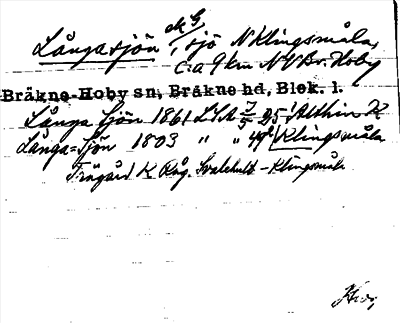 Långasjön, sjö N Klingsmåla,
c:a 9 km NV Br. Hoby
Bräkne-Hoby sn, Bräkne hd, Blek. l.
Långa Sjön 1861 LSA 25 Allhin K
Långa=Sjön 1803 " " 49 Klingsmåla
K Råg. Svalehult - Klingsmåla